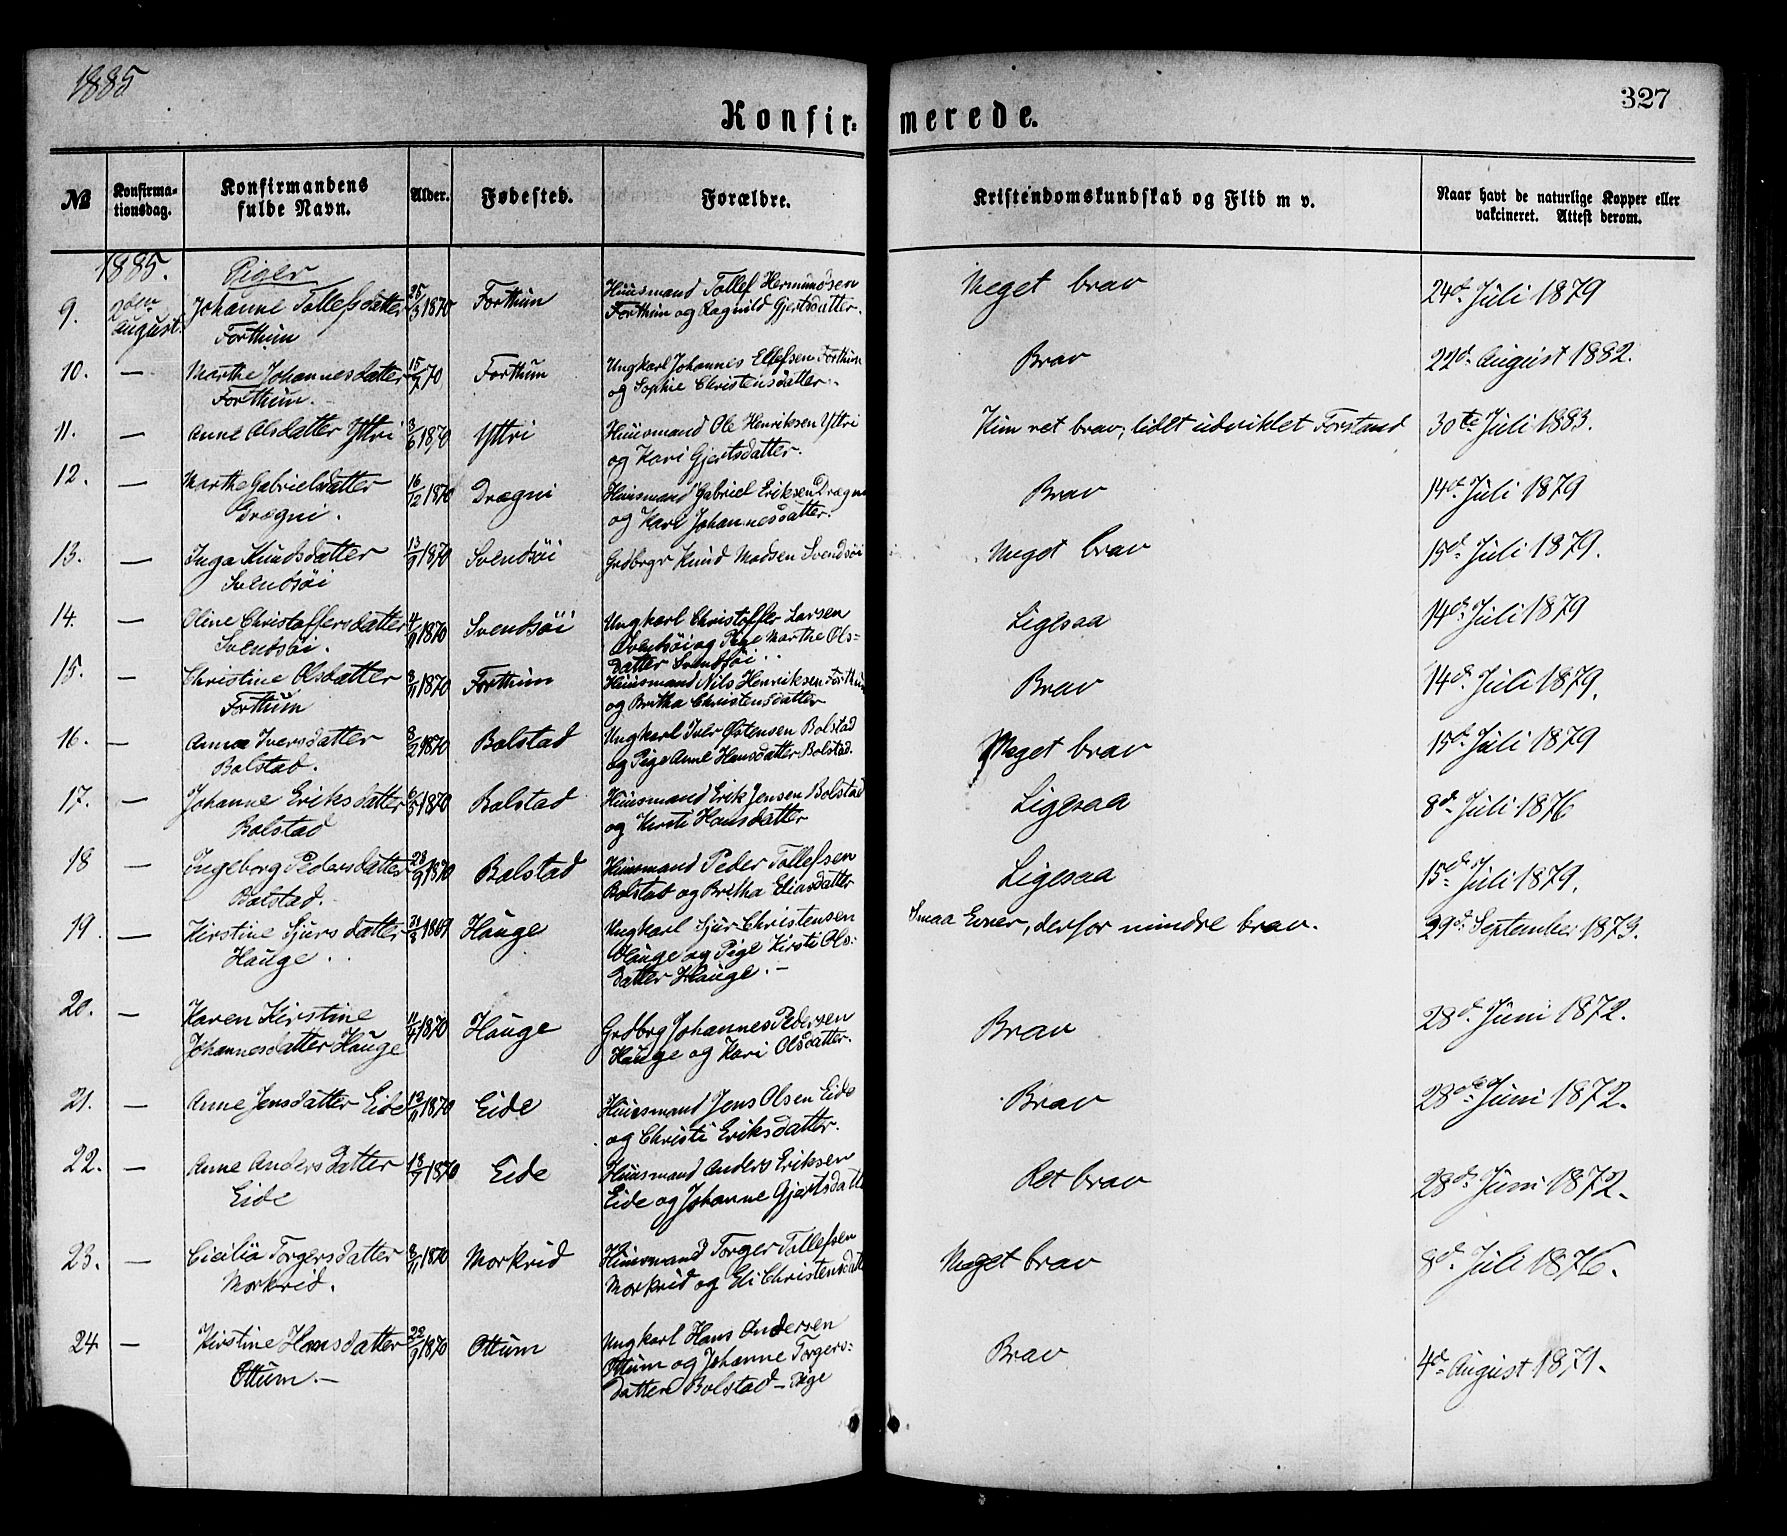 1885
327
Konfir=
merede.
№
Konfirma-
tionsdag.
Konfirmandens
fulde Navn.
Alder.
Fødested.
Forældre.
Kristendomskundskab og Flid m v.
Naar havt de naturlige Kopper eller
vakcineret. Attest derom.
1885. Piger
9. 2den August. Johanne Tollefsdatter Forthun 1870 Forthun Huusmand Tollef Hermundsen
Forthun og Ragnild Gjertsdatter. Meget brav 24d. Juli 1879
10. — Marthe Johannesdatter Forthun. 70 Forthun Ungkarl Johannes Ellefsen Forthun
og Sophie Christensdatter. Brav 22d. August 1882.
11. — Anne Olsdatter Yttri 3/6 1870 Yttri Huusmand Ole Henriksen Yttri
og Kari Gjertsdatter. Kun ret brav, lidt udviklet Forstand 30te Juli 1883.
12. — Marthe Gabrielsdatter Drægni. 16/12 1870 Drægni Huusmand Gabriel Eriksen Drægni
og Kari Johannesdatter. Brav 14d. Juli 1879
13. — Inga Knudsdatter Svendsøi 13/9 1870 Svendsøi Grdbrgr Knud Madsen Svendsøi Meget brav 15d. Juli 1879.
14. — Oline Christoffersdatter Svendsøi. 1870 Svendsøi Ungkarl Christoffer Larsen
Svendsøi og Pige Marthe Ols=
datter Svendsøi. Ligesaa 14d. Juli 1879
15. — Christine Olsdatter Forthun 1870 Forthun Huusmand Nils Henriksen Forthun
og Britha Christensdatter Brav 14d. Juli 1879.
16. — Anna Iversdatter Bolstad. 1870 Bolstad Ungkarl Iver Østensen Bolstad
og Pige Anne Hansdatter Bolstad. Meget brav 15d. Juli 1879
17. — Johanne Eriksdatter Bolstad 1870 Bolstad Huusmand Erik Jensen Bolstad
og Kirsti Hansdatter Ligesaa 8d. Juli 1876
18 — Ingeborg Pedersdatter Bolstad. 28/9 1870 Bolstad Huusmand Peder Tollefsen
Bolstad og Britha Eliasdatter Ligesaa 15d. Juli 1879.
19. — Kirstine Sjursdatter Hauge. 1869 Hauge Ungkarl Sjur Christensen
Hauge og Pige Kirsti Ols=
datter Hauge. — Smaa Evner, derfor mindre brav. 29d. September 1873.
20. — Karen Kirstine
Johannesdatter Hauge 11/4 1870 Hauge Grdbrg Johannes Pedersen
Hauge og Kari Olsdatter. Brav 28d. Juni 1872.
21. — Anne Jensdatter Eide 1870 Eide Huusmand Jens Olsen Eide
og Christi Eriksdatter. Brav 28d. Juni 1872.
22. — Anne Andersdatter Eide 1870 Eide Huusmand Anders Eriksen
Eide og Johanne Gjertsdatt Ret brav 28d. Juni 1872.
23. — Cicilia Torgersdatter Morkrid. 1870 Morkrid Huusmand Torger Tollefsen
Morkrid og Eli Christensdatt Meget brav 8d. Juli 1876.
24 — Kirstine Hansdatter Ottum. — 22/9 1870 Ottum Ungkarl Hans Andersen
Ottum og Johanne Torgers=
datter Bolstad — Pige Brav 4d. August 1871.